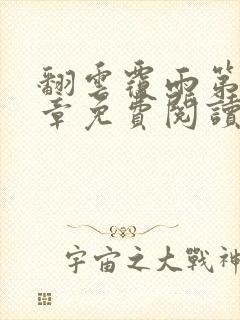 翻雲覆雨第
章免費閱讀
宇宙之大戰神